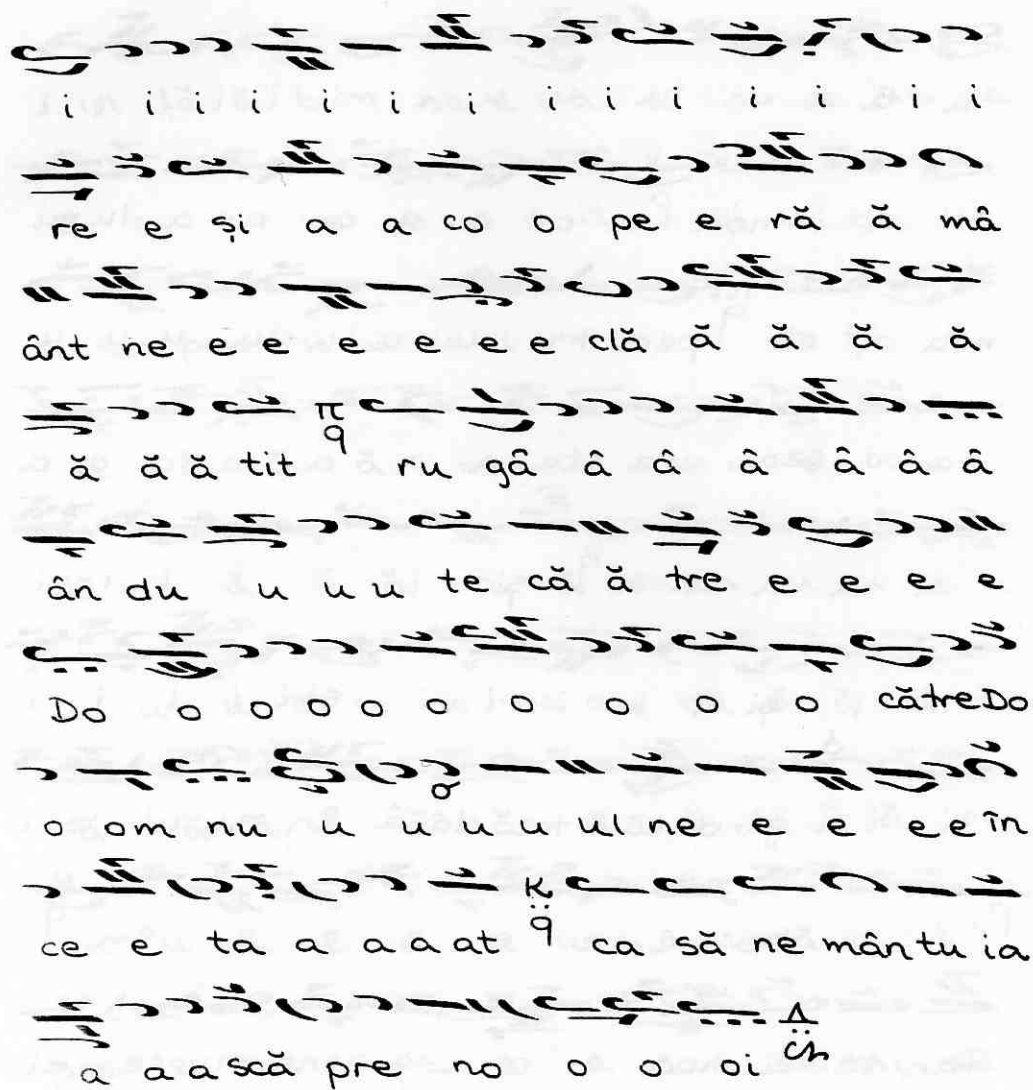 i i i i i i i i i i i i i
re e și a a co o pe e ră ă mâ
ânt ne e e e e e e clă ă ă ă ă
ă ă ă tit ru gâ â â â â â â
ân du u u u te că ă tre e e e e
Do o o o o o o o o o către Do
o omi nu u u u u ul ne e e e e în
ce e ta a a a at ca să ne mân tu ia
a a a scă pre no o o oi